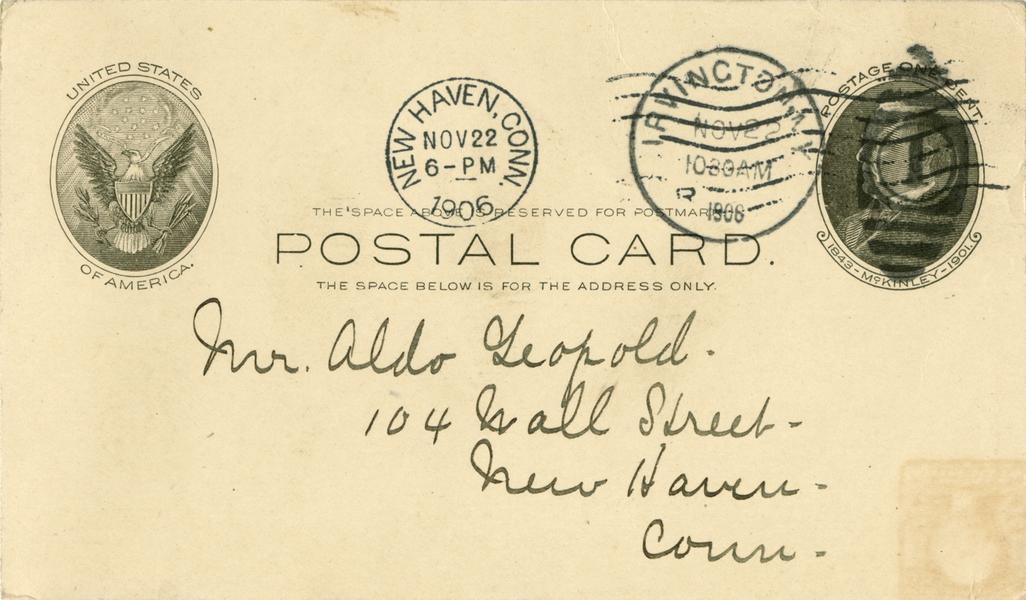 UNITED STATES
OF AMERICA.
NEW HAVEN, CONN.
NOV 22
6-PM
1906
IRVINGTON, N.Y.
NOV 22
1030AM
R
1906
POSTAGE ONE CENT.
1
1843-McKINLEY-1901.
THE SPACE ABOVE IS RESERVED FOR POSTMARK.
POSTAL CARD.
THE SPACE BELOW IS FOR THE ADDRESS ONLY.
Mr. Aldo Leopold.
104 Wall Street-
New Haven-
Conn-